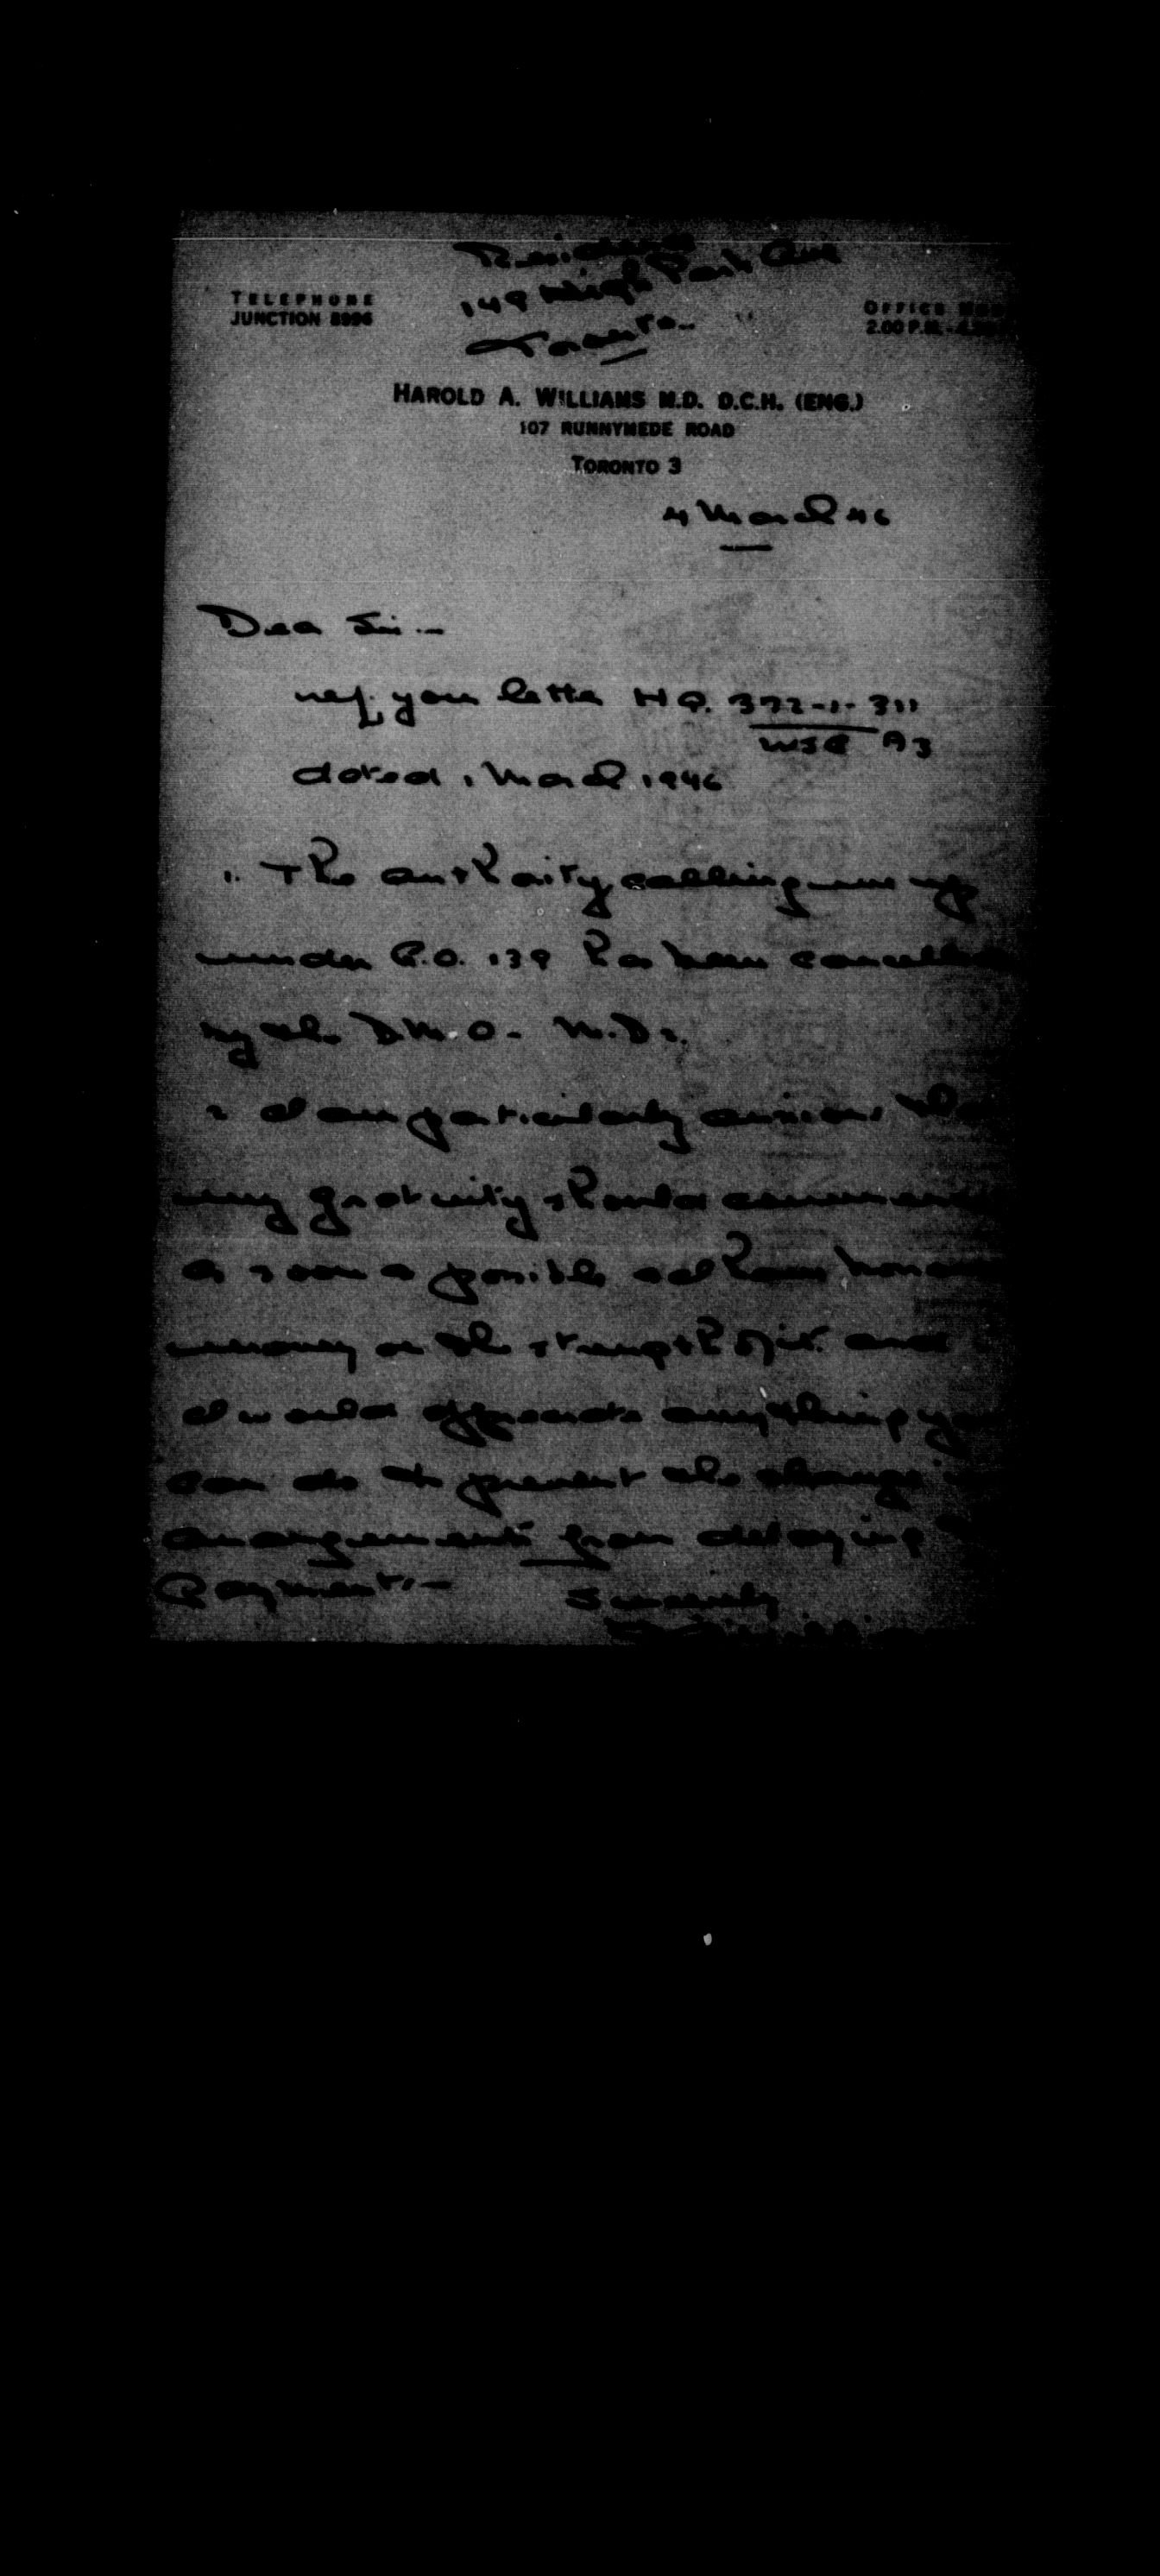 Residence
149 High Park Ave
Toronto
TELEPHONE
JUNCTION 8996
OFFICE
2.00 P.M. -
HAROLD A. WILLIAMS M.D. D.C.H. (ENG.)
107 RUNNYMEDE ROAD
TORONTO 3
4 March 46
Dear Sir -
ref. your letter H Q. 372-1-311
WSG A3
dated 1 March 1946
1. The authority calling me up
under R.O. 139 has been cancelled
by the D.M.O. - M.D 2.
2 I am particularly anxious that
my gratuity should commence
as soon as possible as I have
money on the strength of it. and
I would appreciate anything you
can do to prevent the change in
arrangements from delaying
Payment. -
Sincerely